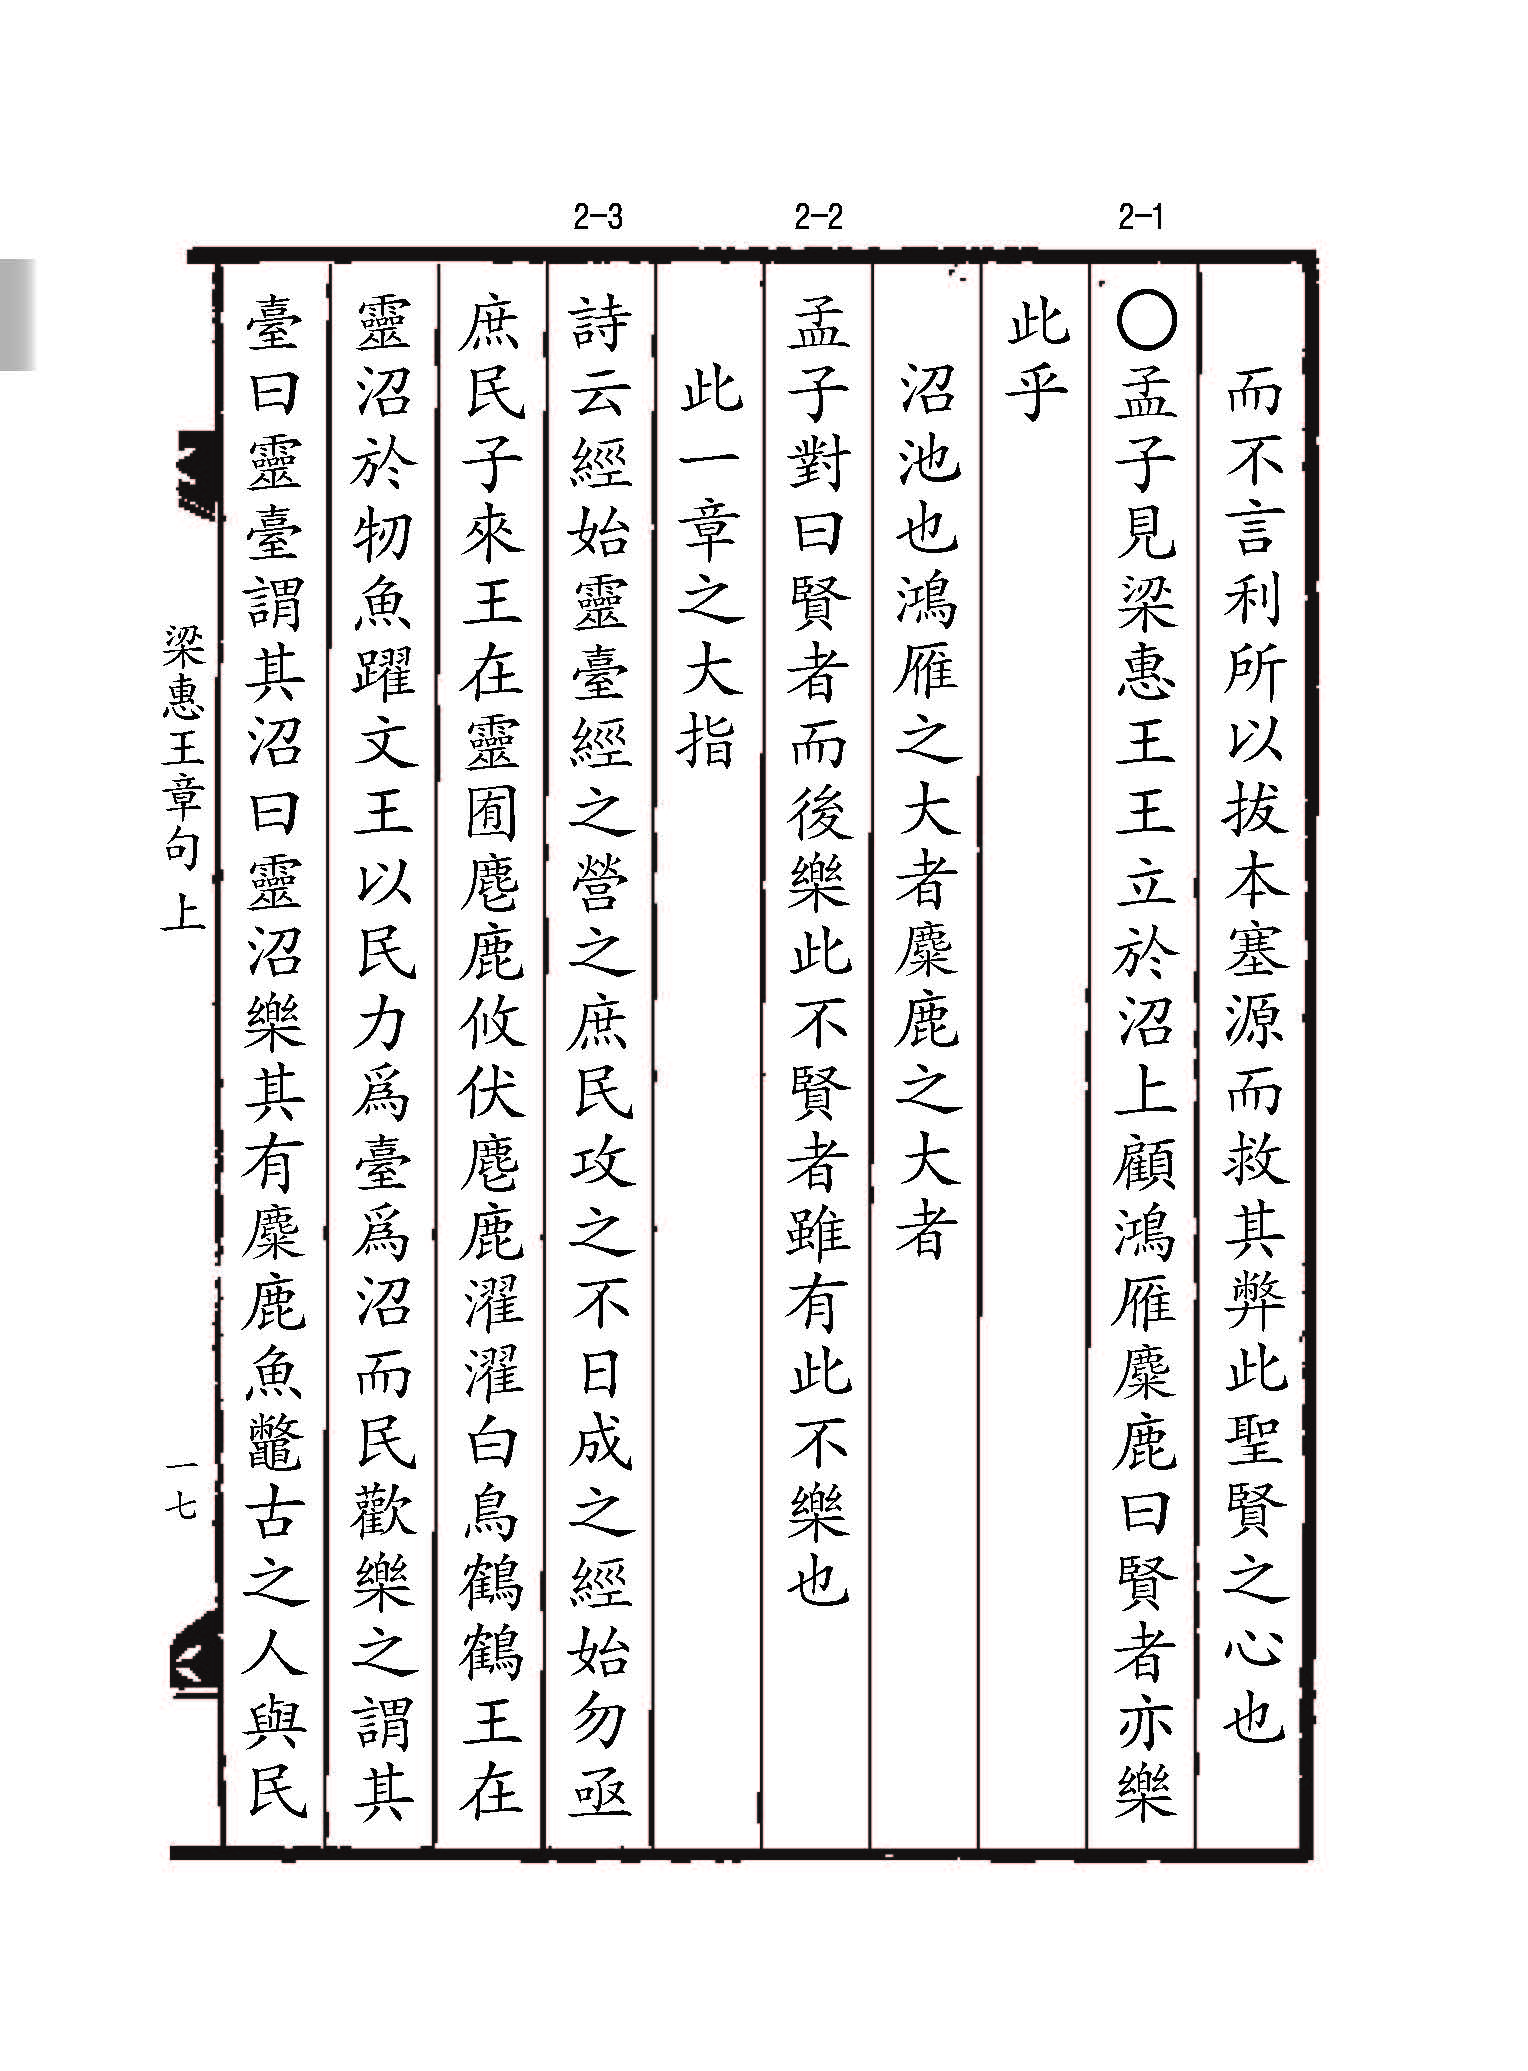 2-1
2-2
2-3
而不言利所以拔本塞源而救其弊此聖賢之心也
○孟子見梁惠王王立於沼上顧鴻雁麋鹿曰賢者亦樂
此乎
沼池也鴻雁之大者麋鹿之大者
孟子對曰賢者而後樂此不賢者雖有此不樂也
此一章之大指
詩云經始靈臺經之營之庶民攻之不日成之經始勿亟
庶民子來王在靈囿麀鹿攸伏麀鹿濯濯白鳥鶴鶴王在
靈沼於牣魚躍文王以民力爲臺爲沼而民歡樂之謂其
臺曰靈臺謂其沼曰靈沼樂其有麋鹿魚鼈古之人與民
梁惠王章句上
一七